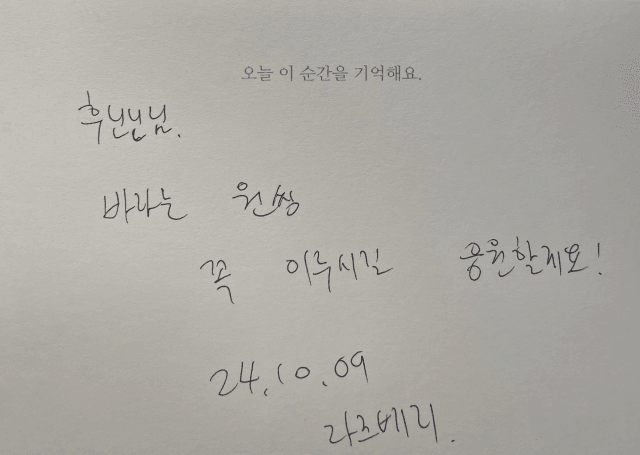 오늘 이 순간을 기억해요.
후닌님.
바라는 원쌍
꼭 이루시길 응원할게요!
24.10.09
라즈베리.